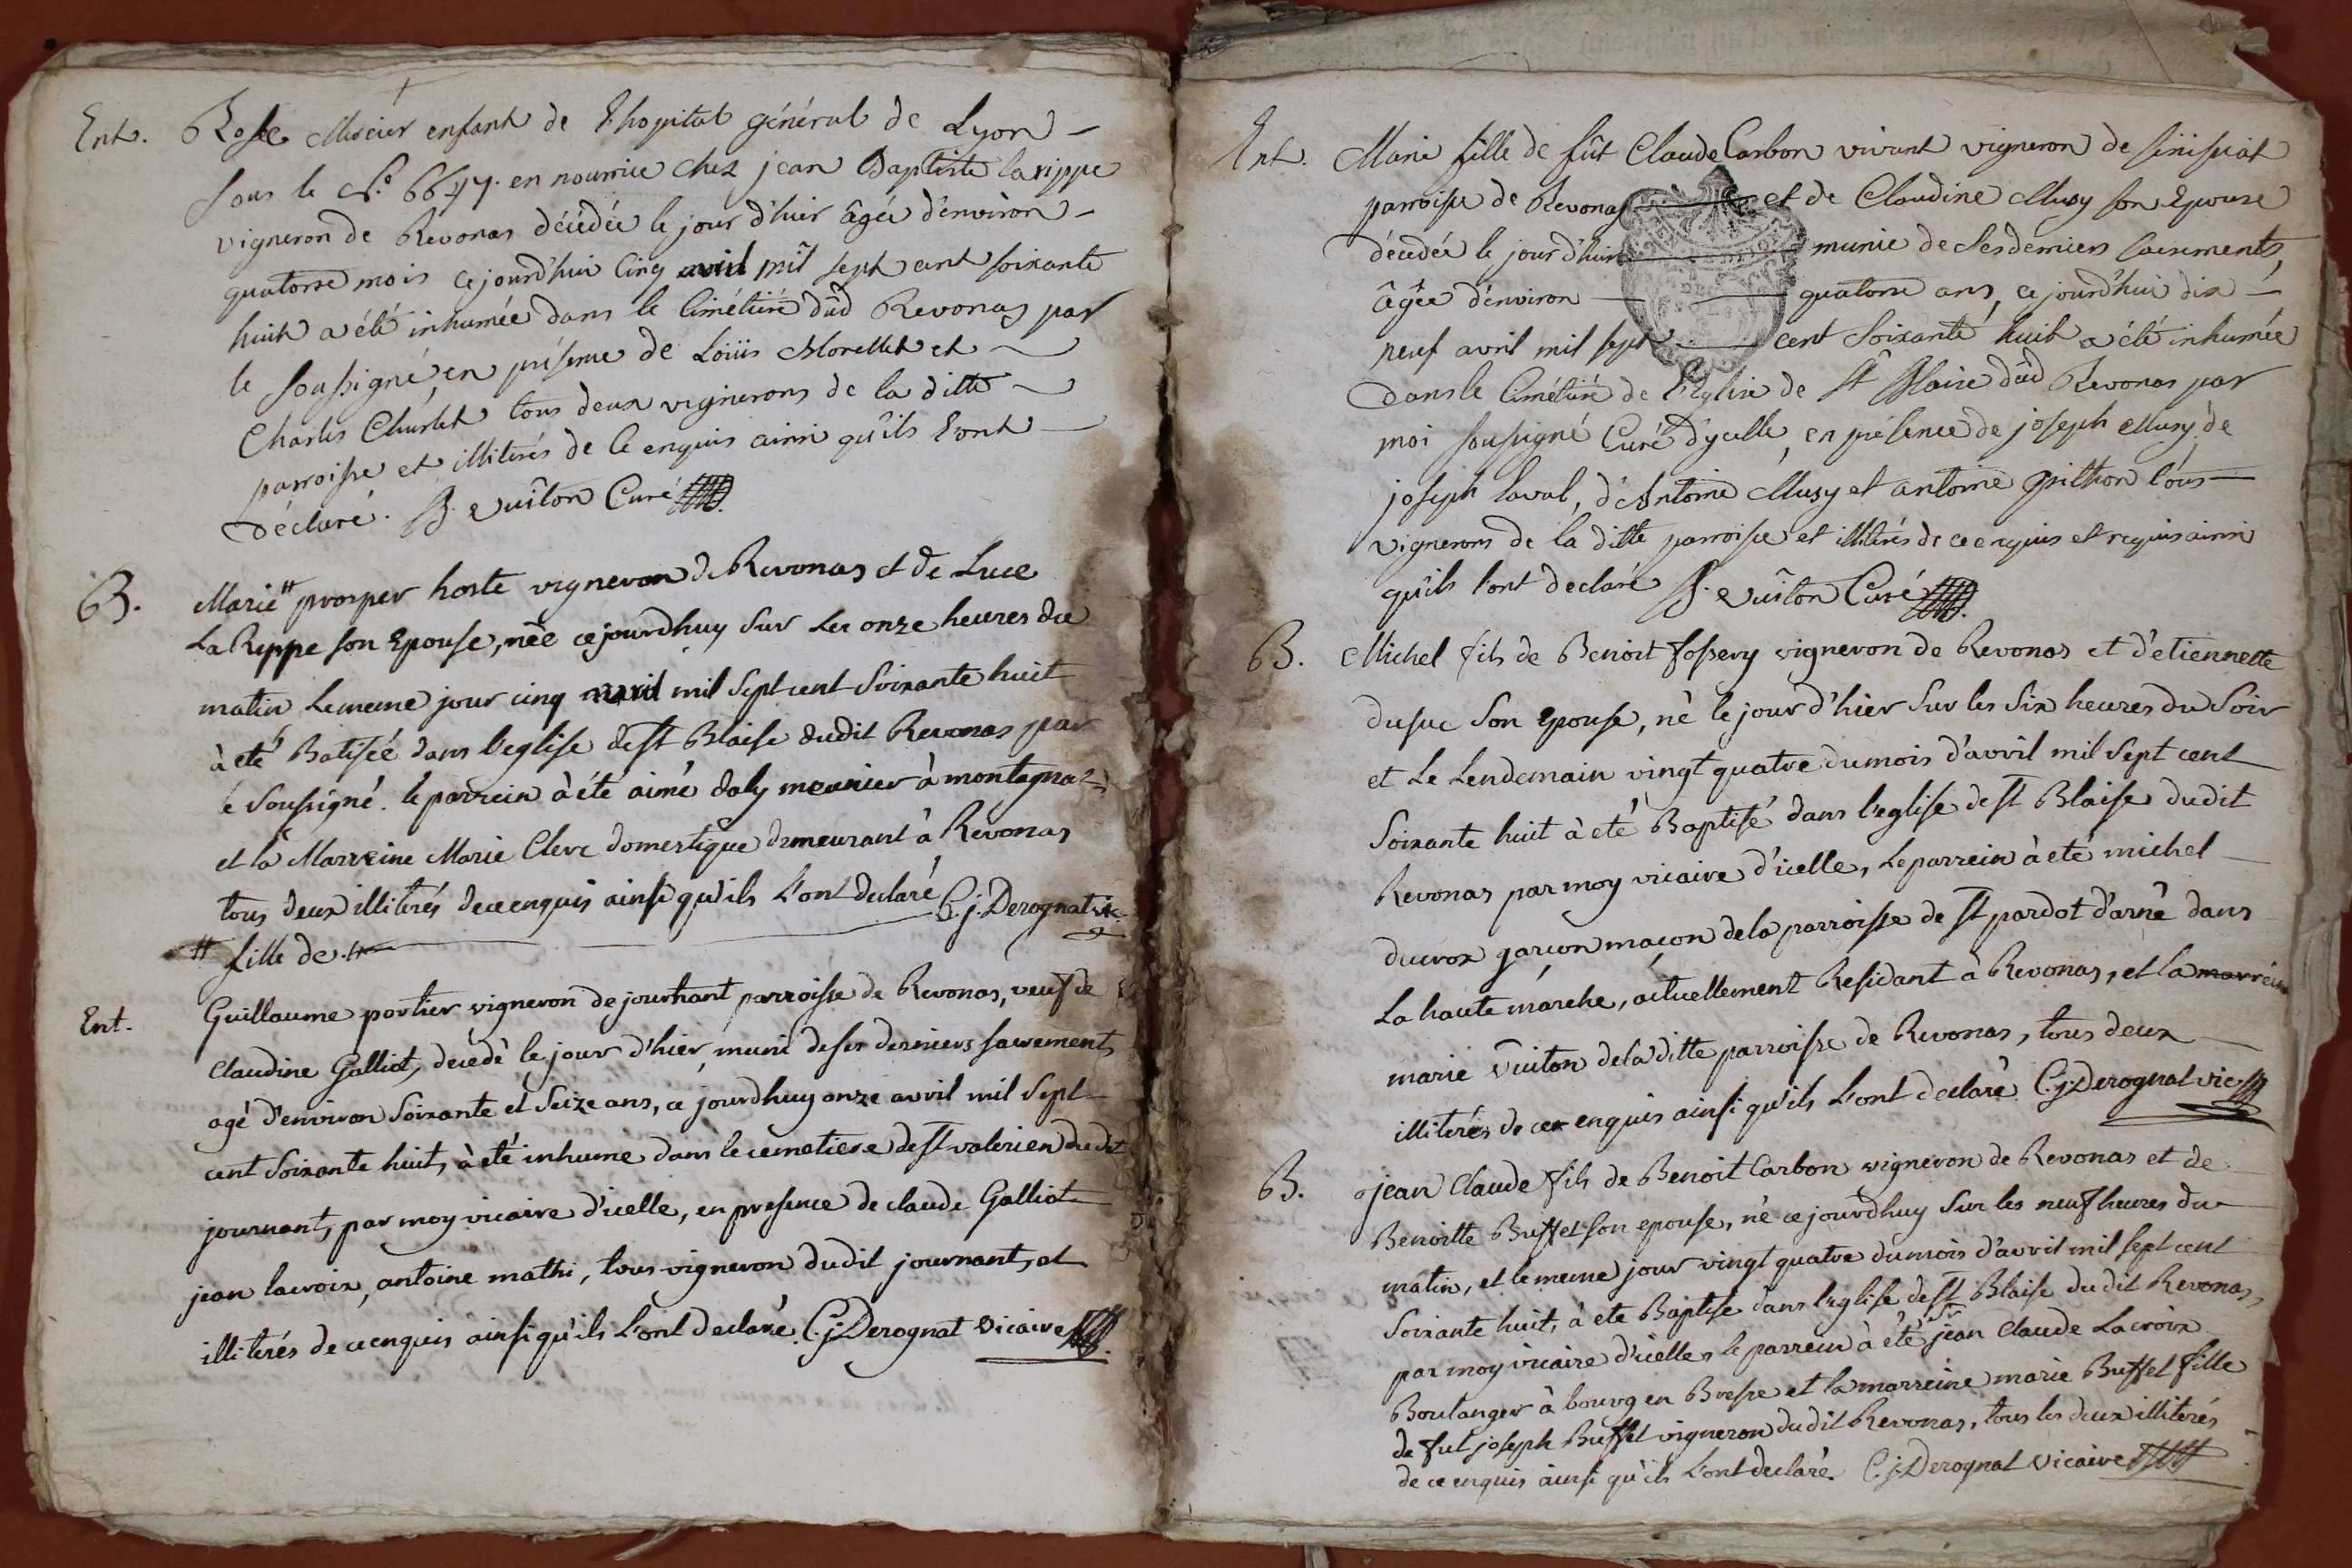 Ent. Rose enfant de l'hopital général de Lyon
sous le N.o en nourrice chez jean Baptiste larippe
vigneron de Revonas décédée le jour d'hier âgée d'environ
quatorse mois cejourd'hui cinq avril mil sept cent soixante
huit a été inhumée dans le Cimétiére dud Revonas par
le soussigné, en présence de Loüis Morellet et
Charles Churlet tous deux vignerons de la ditte
parroisse et illiterés de ce enquis ainsi qu'ils l'ont
déclaré. B. vuiton Curé
B. Marie # prosper hoste vigneron de Revonas et de Luce
La Rippe son Epouse, née cejourdhuy sur les onze heures du
matin Lememe jour cinq avril mil sept cent soixante huit
à eté Batisée dans l'eglise de st Blaise dudit Revonas par
le soussigné. le parrein à été aimé daly meunier à montagnat
et la Marreine Marie Clerc domestique demeurant à Revonas
tous deux illiterés de ce enquis ainsi qu'ils l'ont declaré C. j. Derognat vic.
# fille de #
Ent. Guillaume portier vigneron de journant parroisse de Revonas, veuf de
Claudine Galliot, decedé le jour d'hier, muni de ses derniers sacrements
agé d'environ soixante et seize ans, ce jourdhuy onze avril mil sept
cent soixante huit, à eté inhume dans le cemetiere de st valerien dudit
journant, par moy vicaire d'icelle, en presence de claude Galliot
jean lacroix, antoine mathi, tous vigneron dudit journant, et
illiterés de ce enquis ainsi qu'ils l'ont declaré C. j. Derognat vicaire
Ent. Marie fille de fût Claude Carbon vivant vigneron de sénissiat
parroisse de Revonas et de Claudine Musy son Epouse
décédée le jour d'hier munie de ses derniers sacrements,
âgée d'environ quatorse ans, ce jourd'hui dix
neuf avril mil sept cent soixante huit a été inhumée
dans le Cimétiére de l'Eglise de st Blaise dud Revonas par
moi soussigné Curé d'ycelle, en présence de joseph Musy de
joseph laval, d'Antoine Musy et antoine pithon tous
vignerons de la ditte parroisse et illiterés de ce enquis et requis ainsi
qu'ils l'ont declaré B. vuiton Curé
B. Michel fils de Benoit fossery vigneron de Revonas et d'etiennette
dusuc son Epouse, né le jour d'hier sur les six heures du soir
et Le Lendemain vingt quatre du mois d'avvil mil sept cent
soixante huit à eté Baptisé dans l'eglise de st Blaise dudit
Revonas par moy vicaire d'icelle, Le parrein à eté michel
ducrox garçon maçon de la parroisse de st pardot d'arné dans
La haute marche, actuellement Residant à Revonas, et la marreine
marie vuiton de la ditte parroisse de Revonas, tous deux
illiterés de ce enquis ainsi qu'ils l'ont declaré C. j. Derognat vic
B. jean Claude fils de Benoit Carbon vigneron de Revonas et de
Benoitte Buffet son epouse, né ce jourdhuy sur les neuf heures du
matin, et le meme jour vingt quatre du mois d'avvil mil sept cent
soixante huit, à ete Baptisé dans l'eglise de st Blaise dudit Revonas,
par moy vicaire d'icelle, le parrein à été sr jean Claude Lacroix
Boulanger à bourg en Bresse et la marreine marie Buffet fille
de fut joseph Buffet vigneron dudit Revonas, tous les deux illiterés
de ce enquis ainsi qu'ils l'ont declaré. C. j. Derognat vicaire